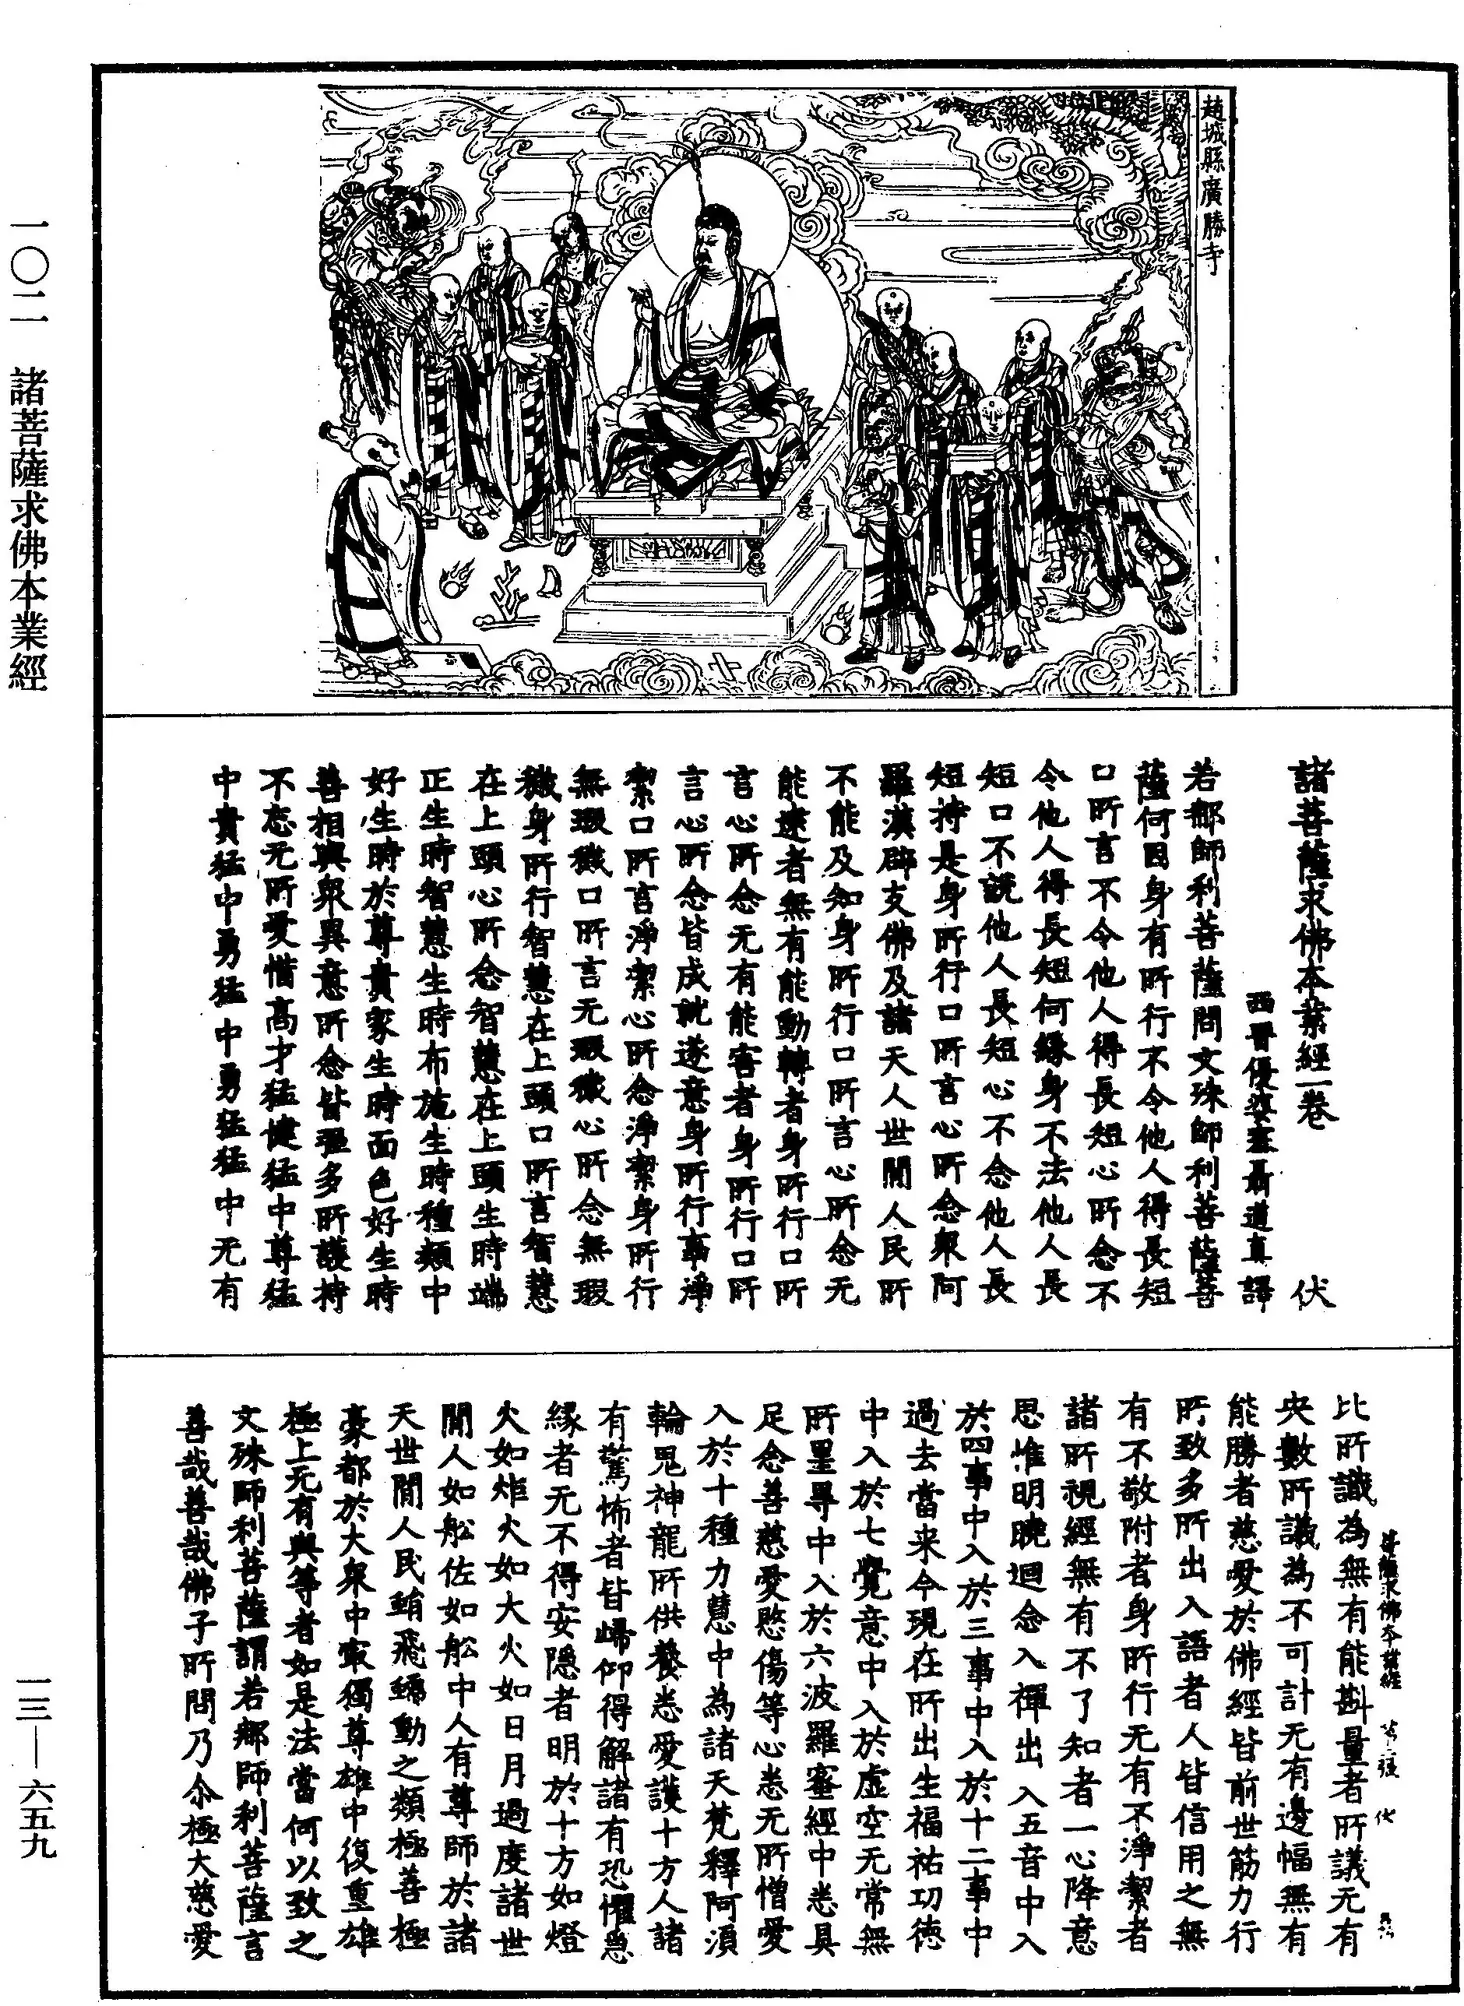 一〇二　諸菩薩求佛本業經
一三—六五九
趙城縣廣勝寺
諸菩薩求佛本業經一卷　伏
西晉優婆塞聶道真譯
若鄒師利菩薩問文殊師利菩薩菩
薩何因身有所行不令他人得長短
口所言不令他人得長短心所念不
令他人得長短何緣身不法他人長
短口不說他人長短心不念他人長
短持是身所行口所言心所念眾阿
羅漢辟支佛及諸天人世間人民所
不能及知身所行口所言心所念无
能逮者無有能動轉者身所行口所
言心所念无有能害者身所行口所
言心所念皆成就遂意身所行事淨
潔口所言淨潔心所念淨潔身所行
無瑕穢口所言无瑕穢心所念無瑕
穢身所行智慧在上頭口所言智慧
在上頭心所念智慧在上頭生時端
正生時智慧生時布施生時種類中
好生時於尊貴家生時面色好生時
善相與眾異意所念皆强多所護持
不忘无所愛惜高才猛健猛中尊猛
中貴猛中勇猛中勇猛猛中无有
比所識為無有能斟量者所議无有
央數所議為不可計无有邊幅無有
能勝者慈愛於佛經皆前世筋力行
所致多所出入語者人皆信用之無
有不敬附者身所行无有不淨潔者
諸所視經無有不了知者一心降意
思惟明曉迴念入禪出入五音中入
於四事中入於三事中入於十二事中
過去當来今現在所出生福祐功德
中入於七覺意中入於虛空无常無
所罣㝵中入於六波羅蜜經中悉具
足念善慈愛愍傷等心悉无所憎愛
入於十種力慧中為諸天梵釋阿須
輪鬼神龍所供養悉愛護十方人諸
有驚怖者皆歸仰得解諸有恐懼急
緣者无不得安隱者明於十方如燈
火如炬火如大火如日月過度諸世
間人如舩佐如舩中人有尊師於諸
天世間人民蜎飛蠕動之類極善極
豪都於大眾中㝡獨尊雄中復重雄
極上无有與等者如是法當何以致之
文殊師利菩薩謂若鄒師利菩薩言
善哉善哉佛子所問乃尒極大慈愛
菩薩求佛本業經　伏